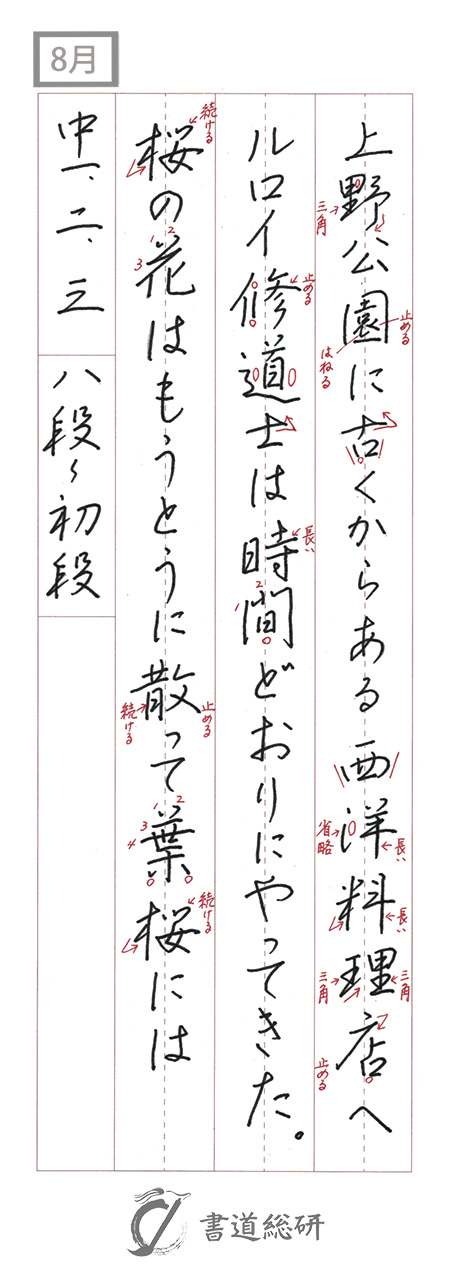 8月
上野公園に古くからある西洋料理店へ
ルロイ修道士は時間どおりにやってきた。
桜の花はもうとうに散って葉桜には
中一、二、三 八段〜初段
三角
止める
はねる
省略
長い
長い
三角
三角
止める
止める
長い
1
2
続ける
1
2
3
続ける
止める
1
2
3
4
続ける
書道総研